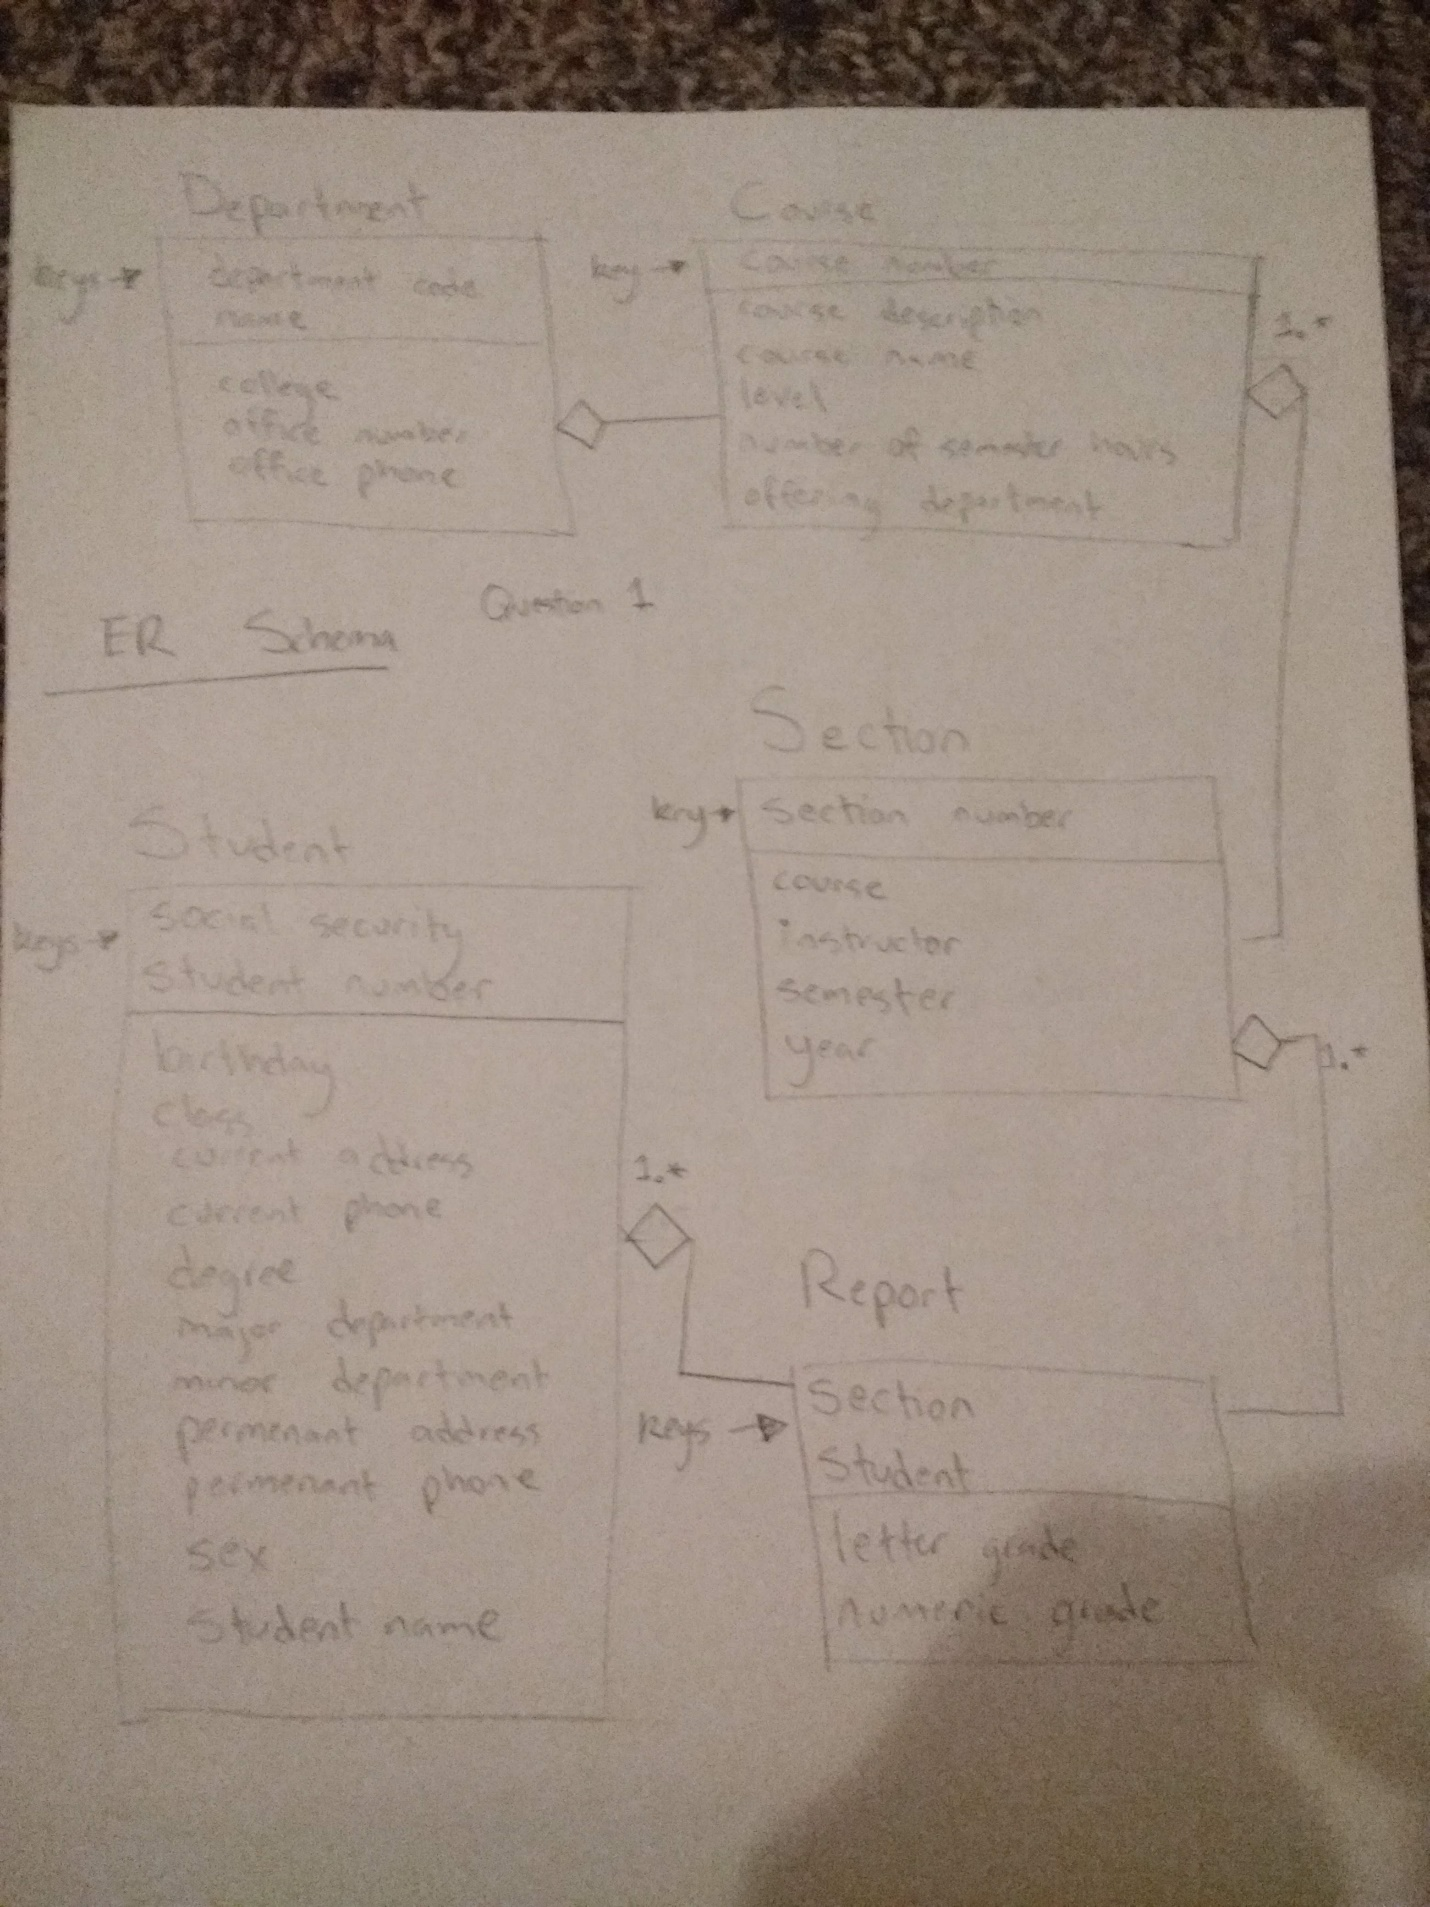 Department
keys
department code
name
college
office number
office phone
Course
key
course number
course description
course name
level
number of semester hours
offering department
1.*
Question 1
ER Schema
Section
key
section number
course
instructor
semester
year
1.*
Student
keys
social security
student number
birthday
class
current address
current phone
degree
major department
minor department
permenant address
permenant phone
sex
student name
1.*
Report
keys
Section
Student
letter grade
numeric grade